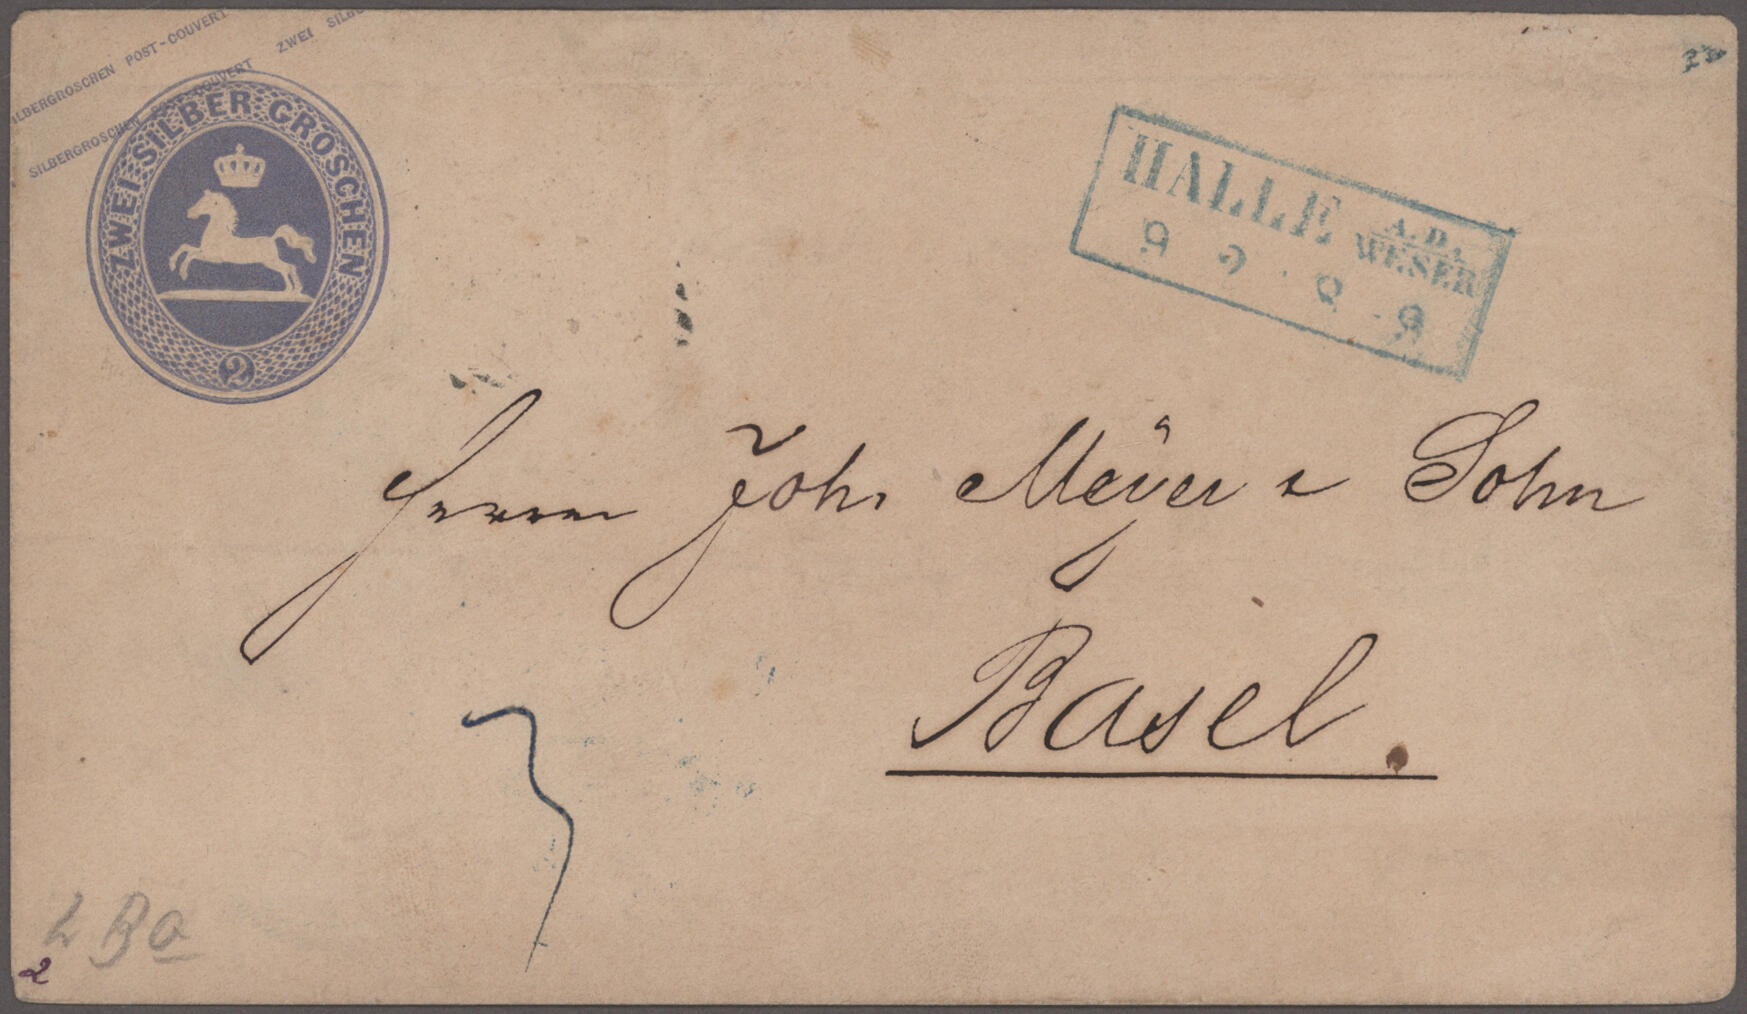 SILBERGROSCHEN POST-COUVERT ZWEI SILB
SILBERGROSCHEN POST-COUVERT
ZWEI SILBER GROSCHEN
2
HALLE A.D. WESER
Herrn Joh. Meÿer & Sohn
Basel.
2